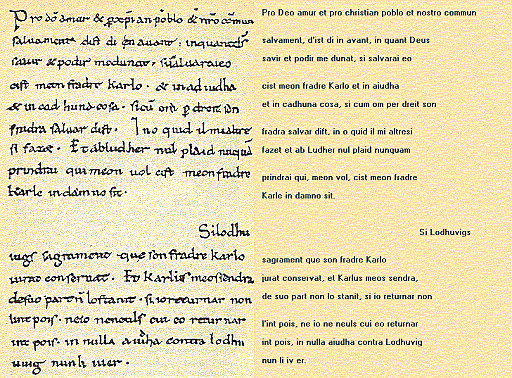 Pro dō amur & pxp̄ian poblo & nrō cōmun
saluament dist di en auant. inquantdś
sauir & podir medunat. sisaluaraieo
cist meon fradre karlo. & in aiudha
& in cad huna cosa. sicū om p dreit son
fradra saluar dist. Ino quid il mialtre
si fazet. Et abludher nul plaid nūquā
prindrai qui meon uol cist meon fradre
karle in damno sit.
Silodhu
uigs sagrament. que son fradre karlo
iurat conseruat. Et karlus meos sendra
desuo partn̄ lostanit. si ioreturnar non
lint pois. neio neneuls cui eo returnar
int pois. in nulla aiudha contra lodhu
uuig nun li iuer.
Pro Deo amur et pro christian poblo et nostro commun
salvament, d'ist di in avant, in quant Deus
savir et podir me dunat, si salvarai eo
cist meon fradre Karlo et in aiudha
et in cadhuna cosa, si cum om per dreit son
fradra salvar dift, in o quid il mi altresi
fazet et ab Ludher nul plaid nunquam
prindrai qui, meon vol, cist meon fradre
Karle in damno sit.
Si Lodhuvigs
sagrament que son fradre Karlo
jurat conservat, et Karlus meos sendra,
de suo part non lo stanit, si io returnar non
l'int pois, ne io ne neuls cui eo returnar
int pois, in nulla aiudha contra Lodhuvig
nun li iv er.